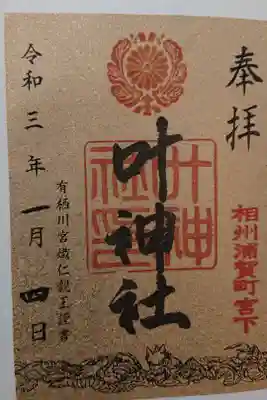 奉拝
相州浦賀町宮下
叶神社
叶神社印
有栖川宮熾仁親王證書
令和三年一月四日